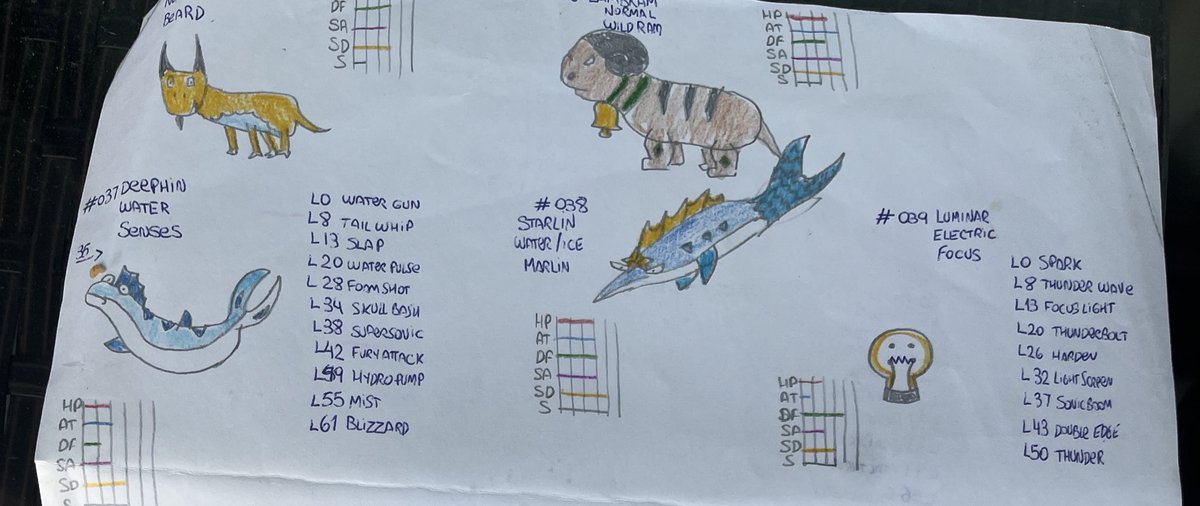 BEARD
DF
SA
SD
S
NORMAL
WILD RAM
HP
AT
DF
SA
SD
S
#037 DEEPHIN
WATER
SENSES
36
L0 WATER GUN
L8 TAIL WHIP
L13 SLAP
L20 WATER PULSE
L28 FOAM SHOT
L34 SKULL BASH
L38 SUPERSONIC
L42 FURY ATTACK
L49 HYDRO PUMP
L55 MIST
L61 BLIZZARD
HP
AT
DF
SA
SD
S
#038
STARLIN
WATER/ICE
MARLIN
HP
AT
DF
SA
SD
S
#039 LUMINAR
ELECTRIC
FOCUS
L0 SPARK
L8 THUNDER WAVE
L13 FOCUS LIGHT
L20 THUNDERBOLT
L26 HARDEN
L32 LIGHT SCREEN
L37 SONICBOOM
L43 DOUBLE EDGE
L50 THUNDER
HP
AT
DF
SA
SD
S